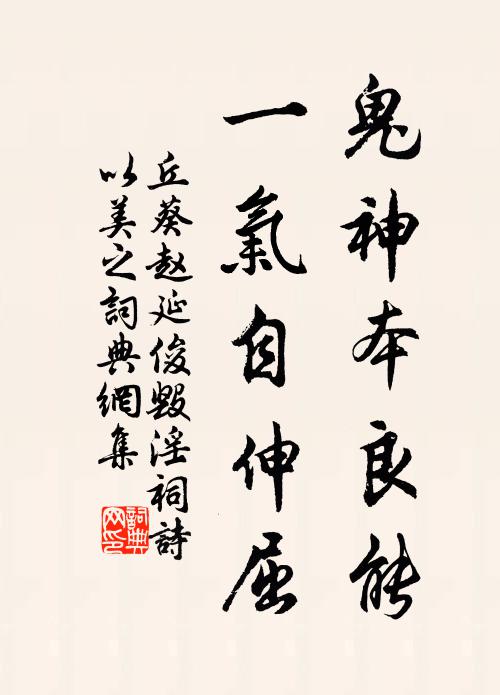 鬼神本良能
一氣自伸屈
丘葵赵延俊毀淫祠詩
以美之詞典網集
詞典
网印